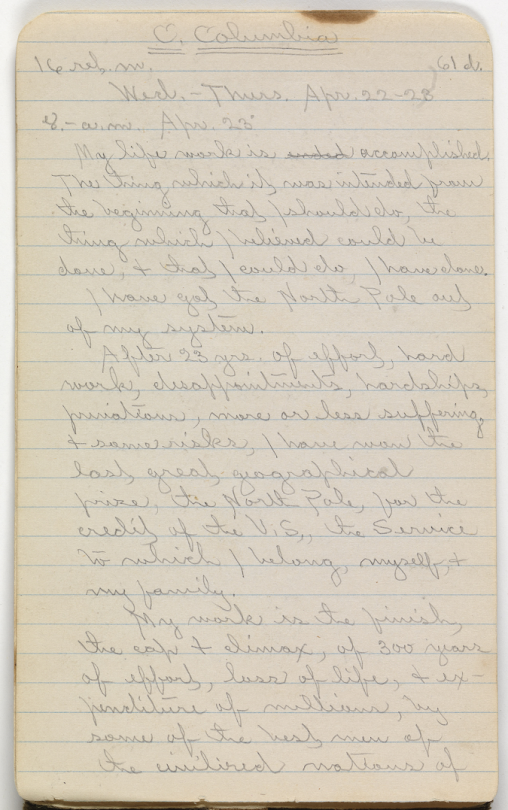 C. Columbia
16 ret. m. 61 d.
Wed. - Thurs. Apr. 22-23
8. - a.m. Apr. 23
My life work is ended accomplished.
The thing which it was intended from
the beginning that I should do, the
thing which I believed could be
done, & that I could do, I have done.
I have got the North Pole out
of my system.
After 23 yrs. of effort, hard
work, disappointments, hardships,
privations, more or less suffering,
& some risks, I have won the
last great geographical
prize, the North Pole, for the
credit of the U.S., the Service
to which I belong, myself, &
my family.
My work is the finish,
the cap & climax, of 300 years
of effort, loss of life, & ex-
penditure of millions, by
some of the best men of
the civilized nations of